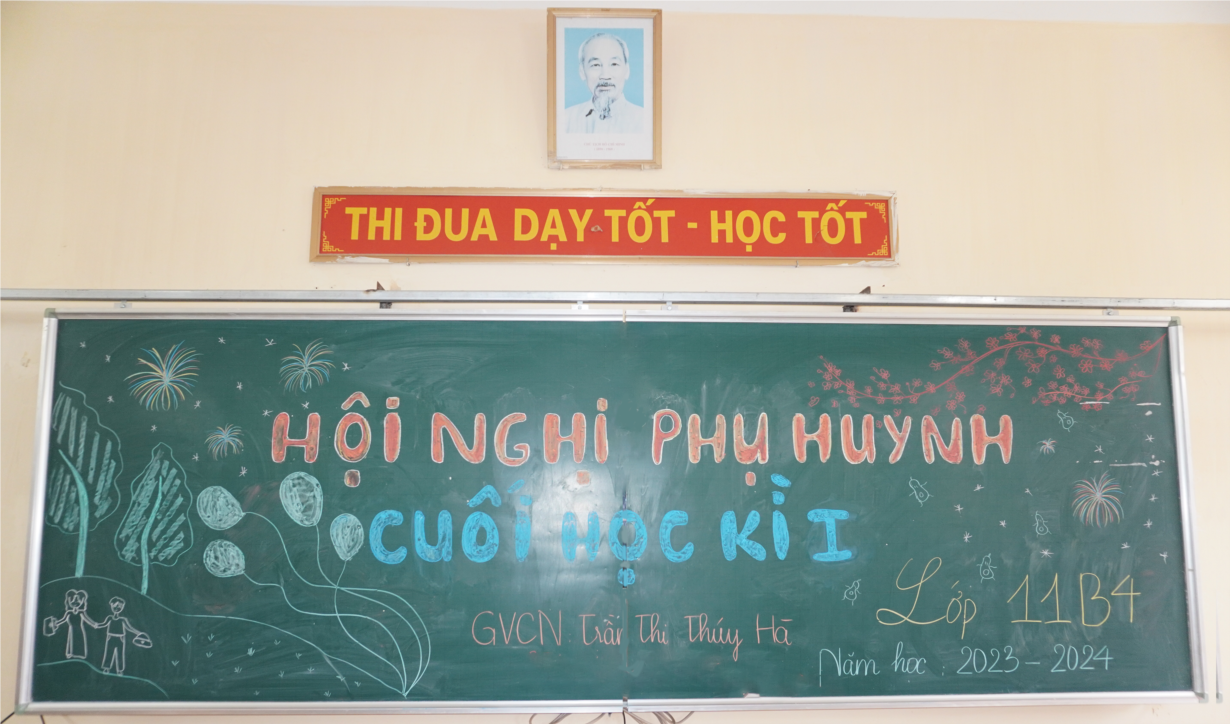 THI ĐUA DẠY TỐT - HỌC TỐT
HỘI NGHỊ PHỤ HUYNH
CUỐI HỌC KÌ I
GVCN: Trần Thị Thúy Hà
Lớp 11B4
Năm học: 2023 - 2024